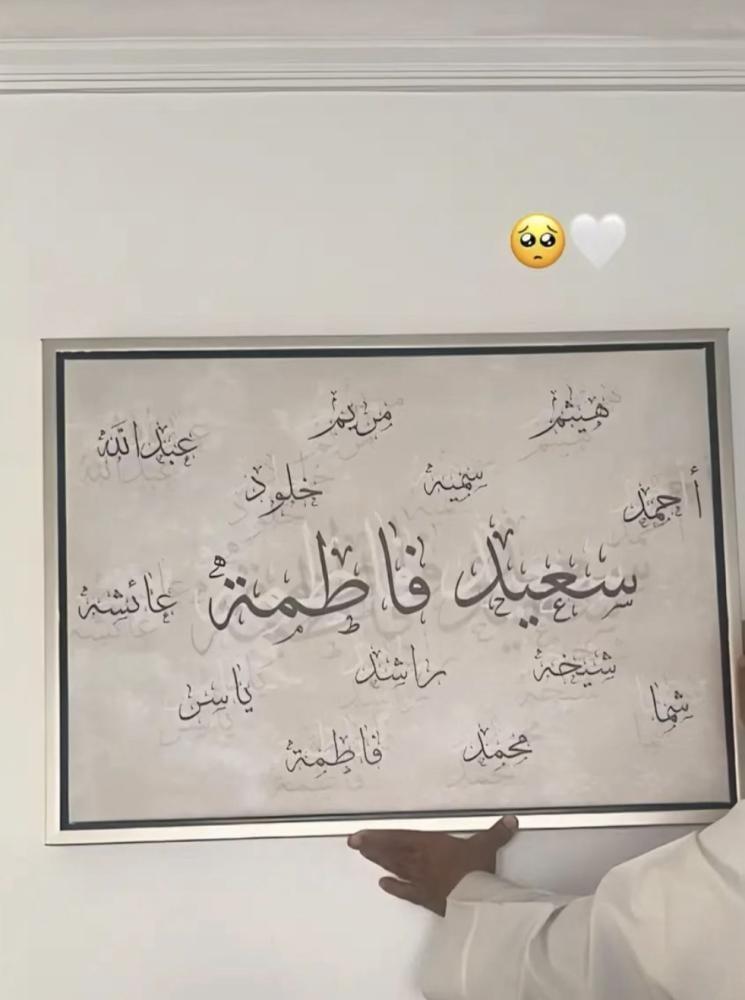 هيثم
مريم
عبدالله
سميه
خلود
أحمد
سعيد فاطمة
عائشه
شيخه
راشد
ياسر
شما
محمد
فاطمة